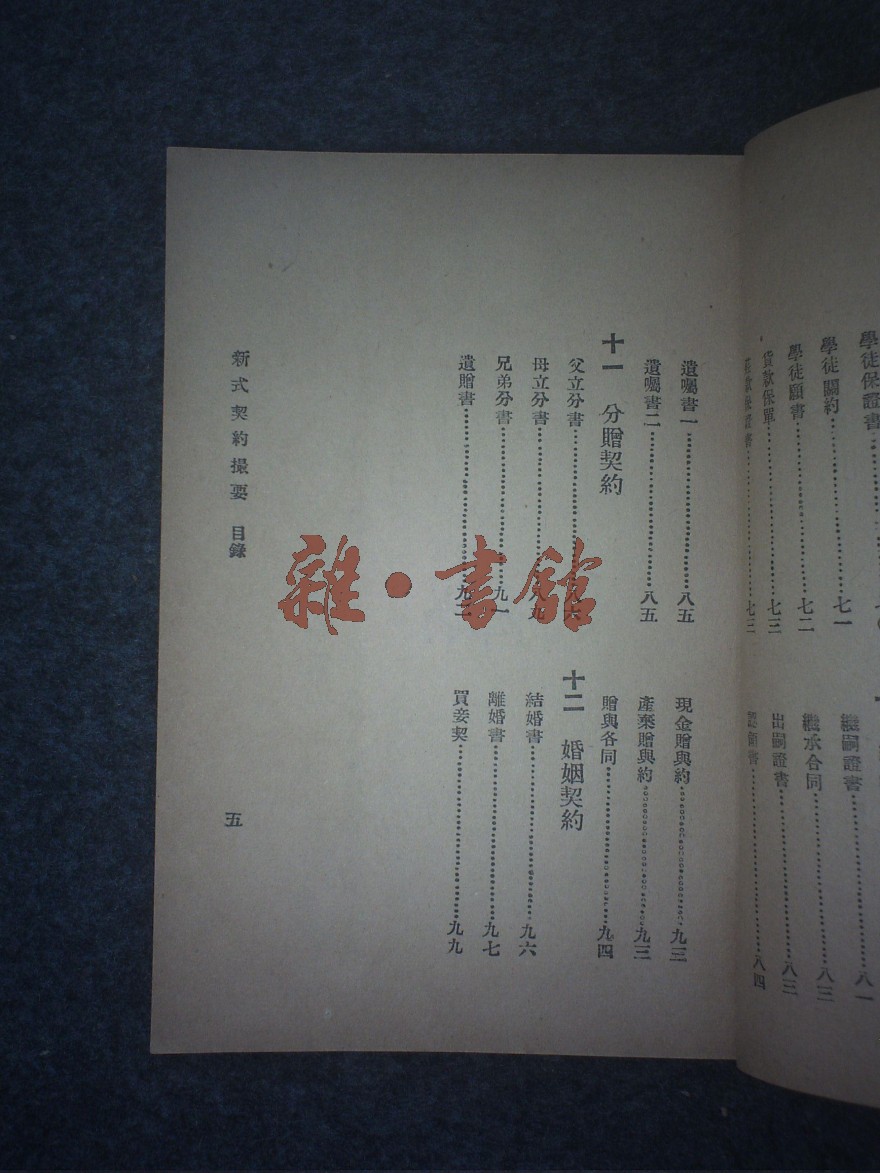 學徒保證書
學徒關約………七一
學徒願書………七二
貸款保單………七三
七三
繼嗣證書………八一
繼承合同………八三
出嗣證書………八三
認領書………八四
遺囑書一………八五
遺囑書二………八五
十一 分贈契約
父立分書………八六
母立分書………八九
兄弟分書………九一
遺贈書………九二
現金贈與約………九三
產棄贈與約………九三
贈與各同………九四
十二 婚姻契約
結婚書………九六
離婚書………九七
買妾契………九九
新式契約撮要 目錄
五
雜·書館